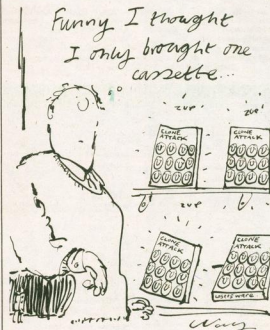 Funny I thought
I only brought one
cassette...
ZUP
ZUP
CLONE
ATTACK
CLONE
ATTACK
ZUP
CLONE
ATTACK
CLONE
ATTACK